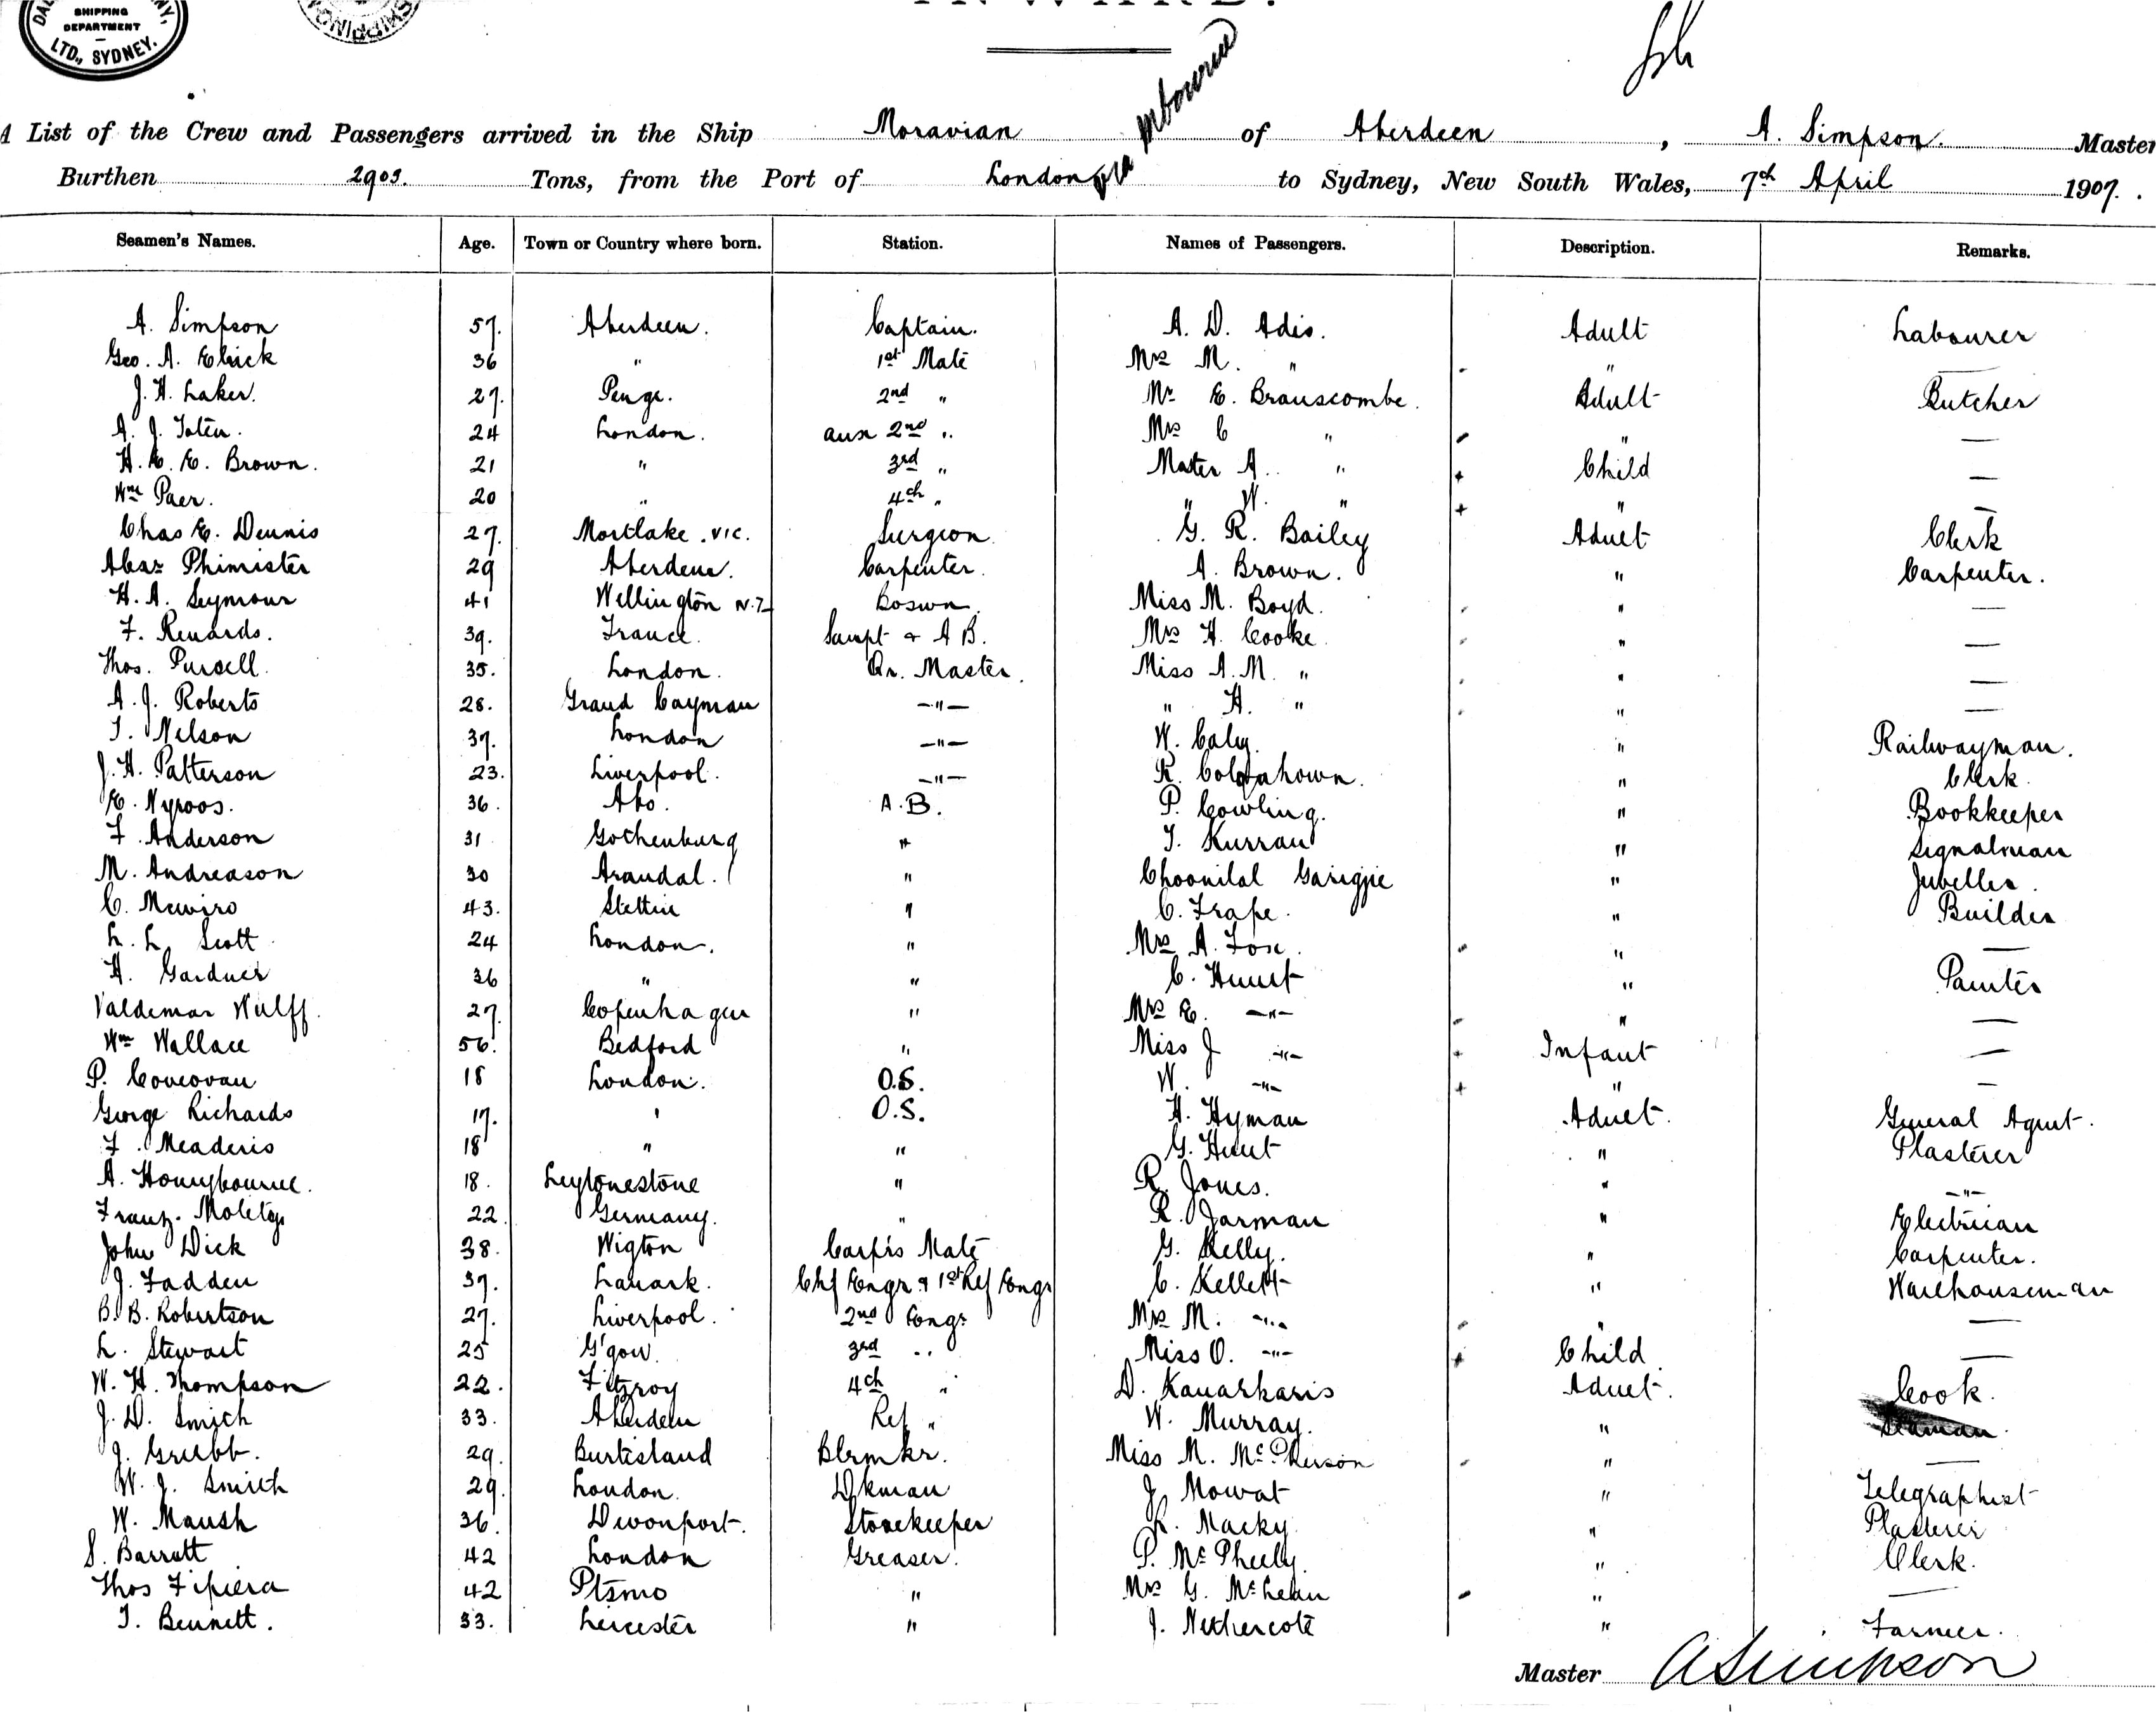 SHIPPING
DEPARTMENT
LTD., SYDNEY.
INWARD.
A List of the Crew and Passengers arrived in the Ship Moravian of Aberdeen, A. Simpson. Master
Burthen 2903. Tons, from the Port of London via Mbourne to Sydney, New South Wales, 7th April 1907.
Seamen's Names. Age. Town or Country where born. Station. Names of Passengers. Description. Remarks.
A. Simpson 57. Aberdeen. Captain. A. D. Adis. Adult Labourer
Geo. A. Elrick 36 " 1st Mate Mrs M. " "  —
J. H. Laker. 27. Penge. 2nd " Mr E. Branscombe. Adult Butcher
A. J. 24 London. aux 2nd " Mrs C " " —
H. E. E. Brown. 21 " 3rd " Master A. " Child —
Wm Paer. 20 " 4th " " W. " " —
Chas E. Dennis 27. Mortlake. VIC. Surgeon G. R. Bailey Aduet Clerk
Alexr Phimister 29 Aberdene. Carpenter. A. Brown. " Carpenter.
H. A. Seymour 41 Wellington N.Z Boswn. Miss M. Boyd. " —
F. Renards. 39. France. Lampt & A B. Mrs H. Cooke " —
Thos. Purcell 35. London. Qr. Master. Miss A. M. " " —
A. J. Roberts 28. Grand Cayman —"— " H. " " —
T. Nelson 37. London —"— W. " Railwayman.
J. H. Patterson 23. Liverpool. —"— R. " Clerk.
E. Nyroos. 36. Abo. A.B. P. Cowling. " Bookkeeper
F. Anderson 31 Gothenburg " T. Kurran " Signalman
M. Andreason 30 Arandal. " Choonilal " Jubeller.
C. 43. Stettin " C. Frape. " Builder
L. L. Scott 24 London. " Mrs A. Fox. " —
H. Gardner 36 " " C. Hunt " Painter
Valdemar Wulff. 27. Copenhagen " Mrs E. —"— " —
Wm Wallace 56. Bedford " Miss J —"— Infant —
P. 18 London. O.S. W. —"— " —
George Richards 17. ' O.S. H. Hyman Aduet. General Agent.
F. Meaderis 18 " " G. Hunt " Plasterer
A. Honeybourne. 18. Leytonestone " R. Jones. " —"—
Franz. 22. Germany. " R. Jarman " Electrician
John Dick 38. Wigton Carp's Mate G. Kelly. " Carpenter.
J. Fadden 37. Lanark. Chf Engr. & 1st Ref Engr C. Kellett " Warehouseman
B. B. Robertson 27. Liverpool. 2nd Engr Mrs M. —"— " —
L. Stewart 25 G'gow. 3rd " Miss O. —"— Child —
W. H. Thompson 22. Fitzroy 4th " D. Kanarkaris Aduet. Cook.
J. D. Smith 33. Aberdeen Ref " W. Murray. " Seaman
J. Grubb. 29. Burtisland Blrmkr. Miss M. McPherson " —
W. J. Smith 29. London. Dkman J. Mowat " Telegraphist
W. Maush 36. Devonport. Storekeeper R. Macky. " Plasterer
S. Barrett 42 London Greaser. P. McPheely. " Clerk.
Thos 42 Ptsmo " Mrs G. McLean " —
T. Bennett. 33. Leicester " J. Nethercote " Farmer.
Master A Simpson